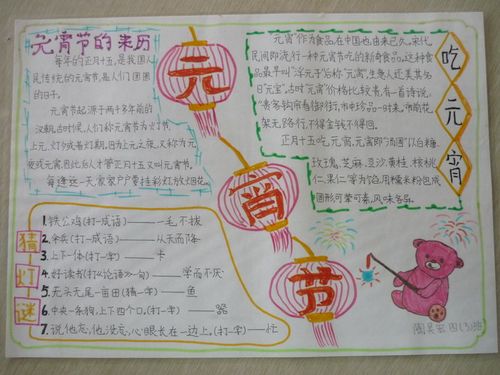 元宵节的来历
每年的正月十五,是我国人
民传统的元宵节,是人们团圆
的日子。
元宵节起源于两千多年前的
汉朝,古时候,人们称元宵节为灯节、
上元、灯夕或者灯期。因为上元之夜,又称为元
夜或元宵,因此后人才管正月十五又叫元宵节。
每逢这一天家家户户要挂彩灯放烟花。
元
宵
节
"元宵"作为食品,在中国也由来已久。宋代,
民间即流行一种元宵节吃的新奇食品。这种食
品,最早叫"浮元子"后称"元宵",生意人还美其名
曰"元宝"。古时"元宵"价格比较贵,有一首诗说:
"贵客钩帘看御街,市中珍品一时来。帘前花
架无路行,不得金钱不得回。
正月十五吃元宵,元宵即"汤圆"以白糖、
玫瑰、芝麻、豆沙、黄桂、核桃
仁、果仁、等为馅,用糯米粉包成
圆形,可荤可素,风味各异。
吃
元
宵
猜
灯
谜
1.铁公鸡(打一成语)——一毛不拔
2.伞兵(打一成语)——从天而降
3.上下一体(打一字)——卡
4.好读书(打《论语》一句)——学而不厌
5.无头无尾一亩田(猜一字)——鱼
6.中央一条狗,上下四个口。(打一字)——器
7.说他忘,他没忘,心眼长在一边上。(打一字)——忙
四(3)班